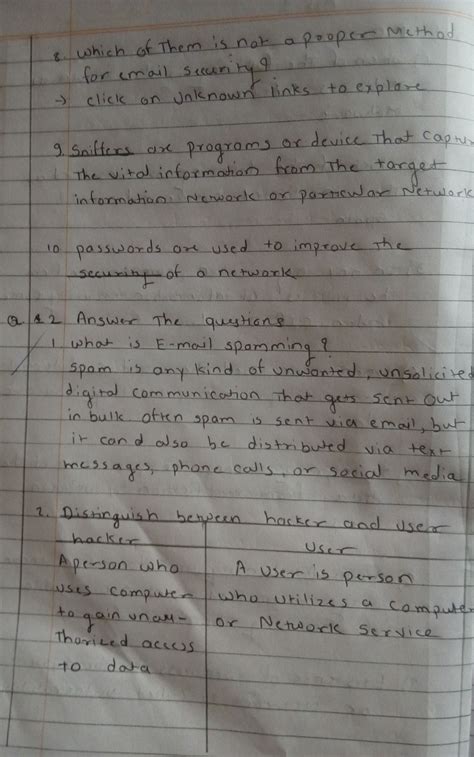 8. which of Them is not a pooper Method
for email security?
→ click on unknown links to explore
9. Sniffers are programs or device That Captur
The vital information from The target
information Network or particular Network
10 passwords are used to improve the
securing of a network
Q. 2 Answer The questions
1. what is E-mail spamming?
spam is any kind of unwanted, unsolicited
digital communication That gets sent out
in bulk often spam is sent via email, but
it can d also be distributed via text
messages, phone calls, or social media
2. Distinguish between hacker and user
hacker
User
A person who
A User is person
uses computer
who utilizes a computer
to gain unau-
or Network Service
Thorized access
to data